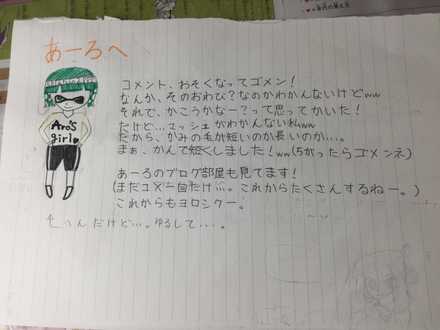 あーろへ
コメント、おそくなってゴメン！
なんか、そのおわび？なのかわかんないけどww
それで、かこうかなー？って思ってかいた！
だけど…マッシュがわかんない私ww
だから、かみの毛が短いのか長いのか…。
まぁ、かんで短くしました！ww（ちがったらゴメンネ）
Aro's
girl
あーろのブログ部屋も見てます！
（まだコメ一回だけ…。これからたくさんするねー。）
これからもヨロシクー。
へんだけど…。ゆるして…。